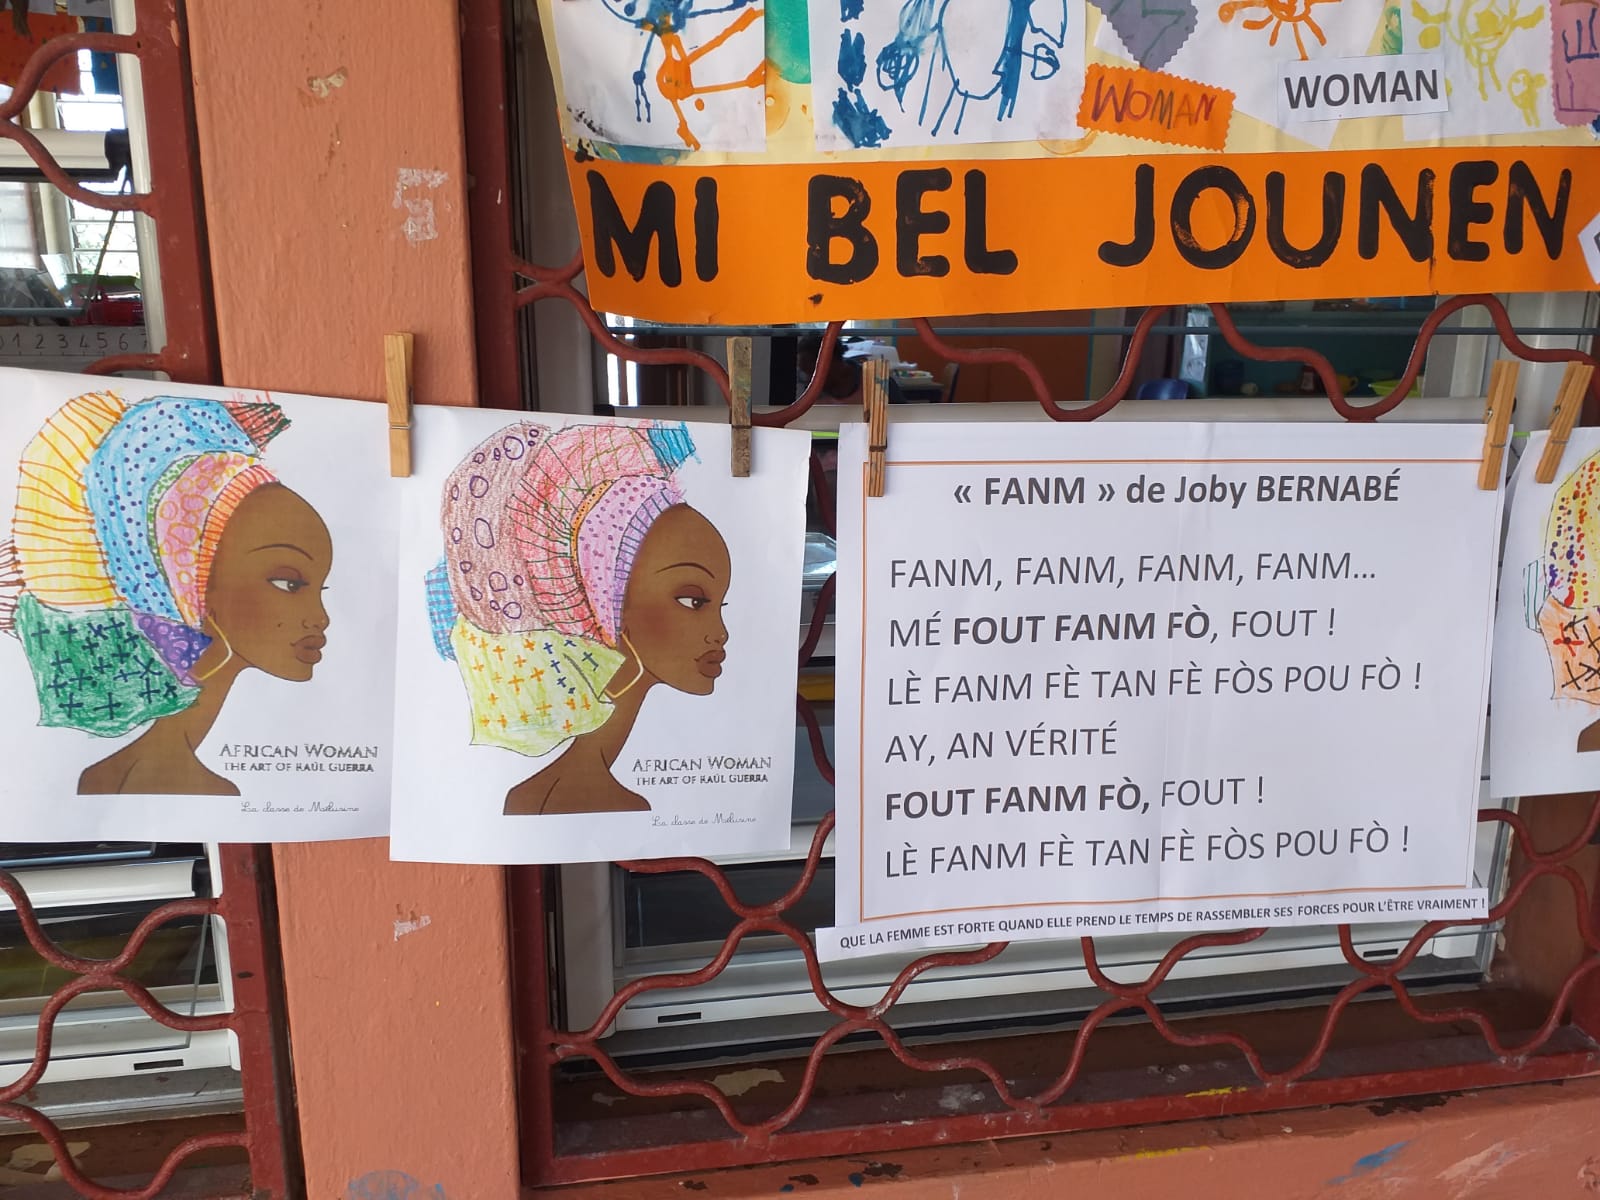 WOMAN
WOMAN
MI BEL JOUNEN
0 1 2 3 4 5 6 7
« FANM » de Joby BERNABÉ
FANM, FANM, FANM, FANM...
MÉ FOUT FANM FÒ, FOUT !
LÈ FANM FÈ TAN FÈ FÒS POU FÒ !
AY, AN VÉRITÉ
FOUT FANM FÒ, FOUT !
LÈ FANM FÈ TAN FÈ FÒS POU FÒ !
QUE LA FEMME EST FORTE QUAND ELLE PREND LE TEMPS DE RASSEMBLER SES FORCES POUR L'ÊTRE VRAIMENT !
AFRICAN WOMAN
THE ART OF RAÜL GUERRA
La classe de Mélusine
AFRICAN WOMAN
THE ART OF RAÜL GUERRA
La classe de Mélusine